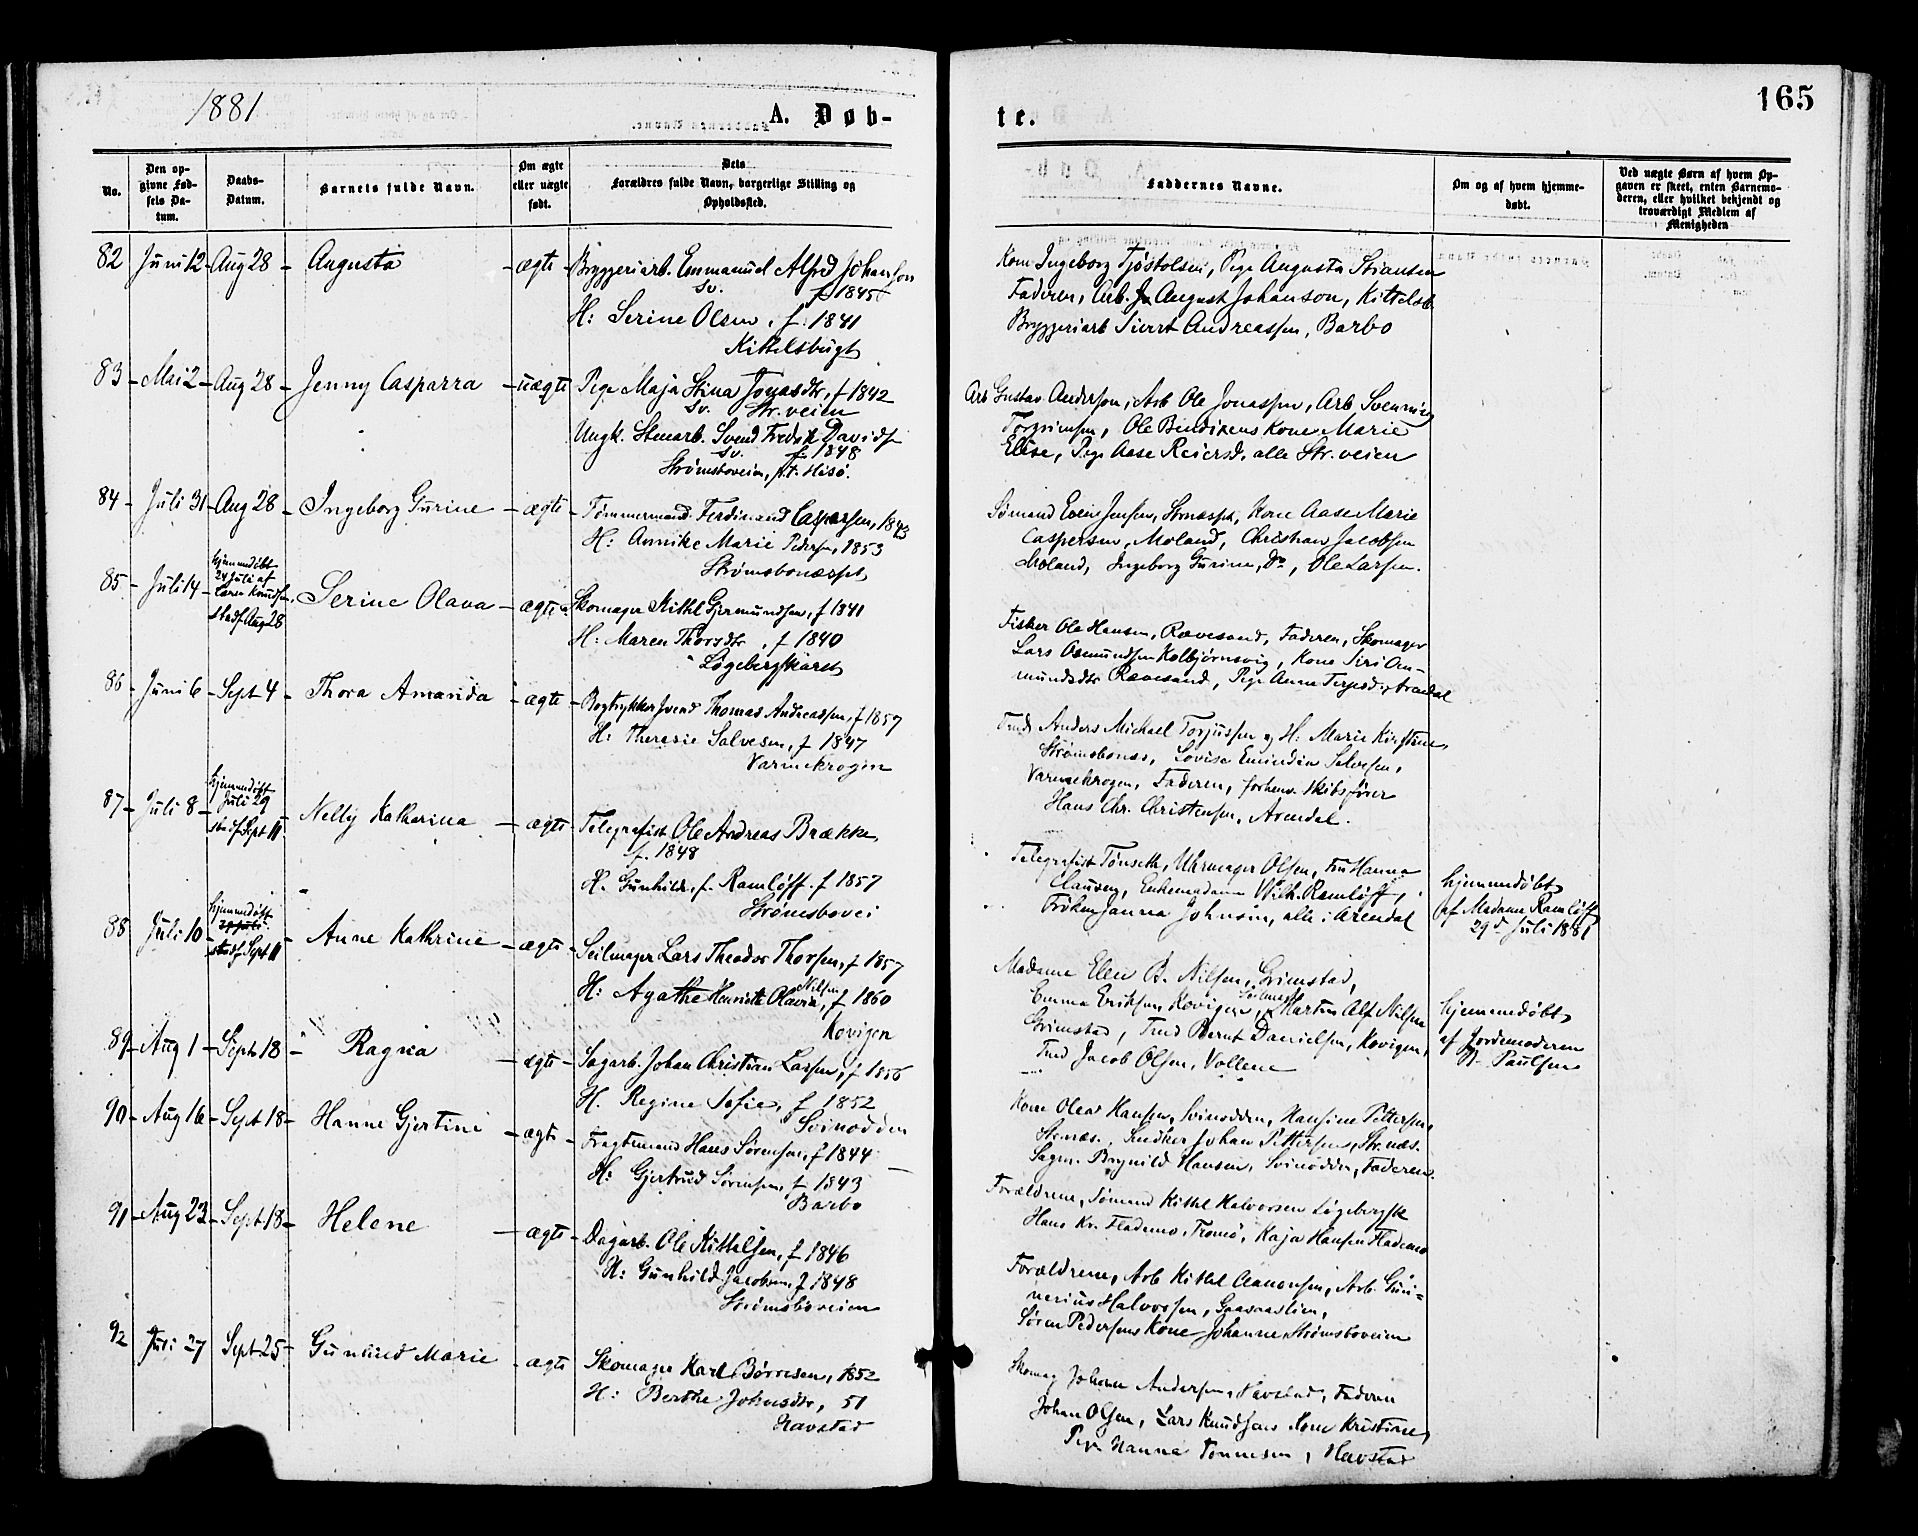 1881
A. Døb-
te.
165
No.
Den op-
givne Fød-
sels Da-
tum.
Daabs-
Datum.
Barnets fulde Navn.
Om ægte
eller uægte
født.
Dets
Forældres fulde Navn, borgerlige Stilling og
Opholdssted.
Faddernes Navne.
Om og af hvem hjemme-
døbt.
Ved uægte Børn af hvem Op-
gaven er skeet, enten Barnemo-
deren, eller hvilket bekjendt og
troværdigt Medlem af
Menigheden
82 Juni 12 - Aug 28 - Augusta - ægte - Bryggeriarb. Emmanuel Alfred Johanson
Sv. f 1845
H: Serine Olsen, f. 1841
Kittelsbugt
Kone Ingeborg Tjøstolsen, Pige Augusta Stiansen
Faderen, Arb. August Johanson, Kittelsb.
Bryggeriarb Sivert Andreassen, Barbo
83 - Mai 2 - Aug 28 - Jenny Casparra - uægte - Pige Maja Stina Jonasdtr, f 1842
Sv. Str.veien
Ungk. Stenarb. Svend Fredrik Davids
Sv. f 1848
Strømsboveien, p.t. Hisø.
Arb Gustav Anderson, Arb Ole Jonassen, Arb. Svenning
Torgrimsen, Ole Bendixens Kone Marie
Elise, Pige Aase Reiersd, alle Str.veien
84 - Juli 31 - Aug 28 - Ingeborg Gurine - ægte - Tømmermand Ferdinand Caspersen, 1843
H: Annike Marie Pedersen, 1853
Strømsbonæsset
Sømand Even Jensen, Strnæsset, Kone Aase Marie
Caspersen, Moland, Christian Jacobsen
Moland, Ingeborg Gurine, Do, Ole Larsen.
85 - Juli 14 - hjemmedøbt
24 Juli af
Karen Knudsen,
stadf Aug 28 Serine Olava - ægte - Skomager Kittel Gjermundsen, f 1841
H: Maren Thorsdtr, f 1840
Løgebergskaret
Fisker Ole Hansen, Rævesand, Faderen, Skomager
Lars Osmundsen Kolbjørnsvig, Kone Siri Om-
mundsdtr Rævesand, Pige Anne Terjesd, Arendal
86 - Juni 6 - Sept 4 - Thora Amanda - ægte - Bogtrykkersvend Thomas Andreassen, f 1857
H: Theresie Salvesen, f 1847
Varmekrogen
Tmd Anders Michael Torjussen og H: Marie Kirstine,
Strømsbonæs, Lovise Emindia Salvesen,
Varmekrogen, Faderen, forhenv. Skibsfører
Hans Chr. Christensen, Arendal.
87 - Juli 8 - hjemmedøbt
Juli 29
stadf Sept 11 - Nelly Katharina - ægte - Telegrafist Ole Andreas Brække
f. 1848
H. Gunhilde, f. Ramløff. f 1857
Strømsbovei
Telegrafist Tønseth, Uhrmager Olsen, Fru Hanna
Clausen, Enkemadame Wilh. Ramløff,
Frøken Janna Johnsen, alle i Arendal
hjemmedøbt
af Madame Ramløff
29d Juli 1881
88 Juli 10 - hjemmedøbt
29 Juli.
stadf Sept 11 - Anne Kathrine - ægte - Seilmager Lars Theodor Thorsen, f 1857
H: Agathe Henriette Olavia Nilsen, f 1860
Kovigen
Madame Elen B. Nilsen, Grimstad,
Emma Eriksen, Kovigen, Martin Alf Nilsen
Grimstad, Tmd Bernt Danielsen, Kovigen,
Tmd Jacob Olsen, Vollene
hjemmedøbt
af Jordemoderen
B. Paulsen
89 - Aug 1 - Sept 18 - Ragna - ægte - Sagarb. Johan Christian Larsen, f 1856
H. Regine Sofie, f 1852
Svinodden
Kone Olea Hansen, Svinodden, Hansine Pettersen,
Strnæs, Snedker Johan Pettersen, Str.næs.
Sagm. Brynild Hansen, Svinodden, Faderen.
90 - Aug 16 - Sept 18 - Hanne Gjertine - ægte - Fragtemand Hans Sørensen, f 1844
H: Gjertrud Sørensen, f 1843
Barbo
Forældrene, Sømand Kittel Halvorsen Løgebergsk
Hans Kr. Flademo, Tromø, Kaja Hansen Flademo
91 - Aug 23 - Sept 18 - Helene - ægte - Dagarb. Ole Kittelsen, f 1846
H: Gunhild Jacobsen, f 1848
Strømsboveien
Forældrene, Arb Kittel Aanonsen, Arb. Gun-
nerius Halvorsen, Gaasaaslien,
Søren Pedersens Kone Johanne Strømsboveien
92 Juli 27 Sept 25 - Gunhild Marie - ægte - Skomager Karl Børresen, 1852
H: Berthe Johnsdtr, 51
Havstad
Skomag Johan Andersen, Havstad, Faderen
Johan Olsen, Lars Knudsens Kone Kristine,
Pige Hanna Tønnesen, Havstad